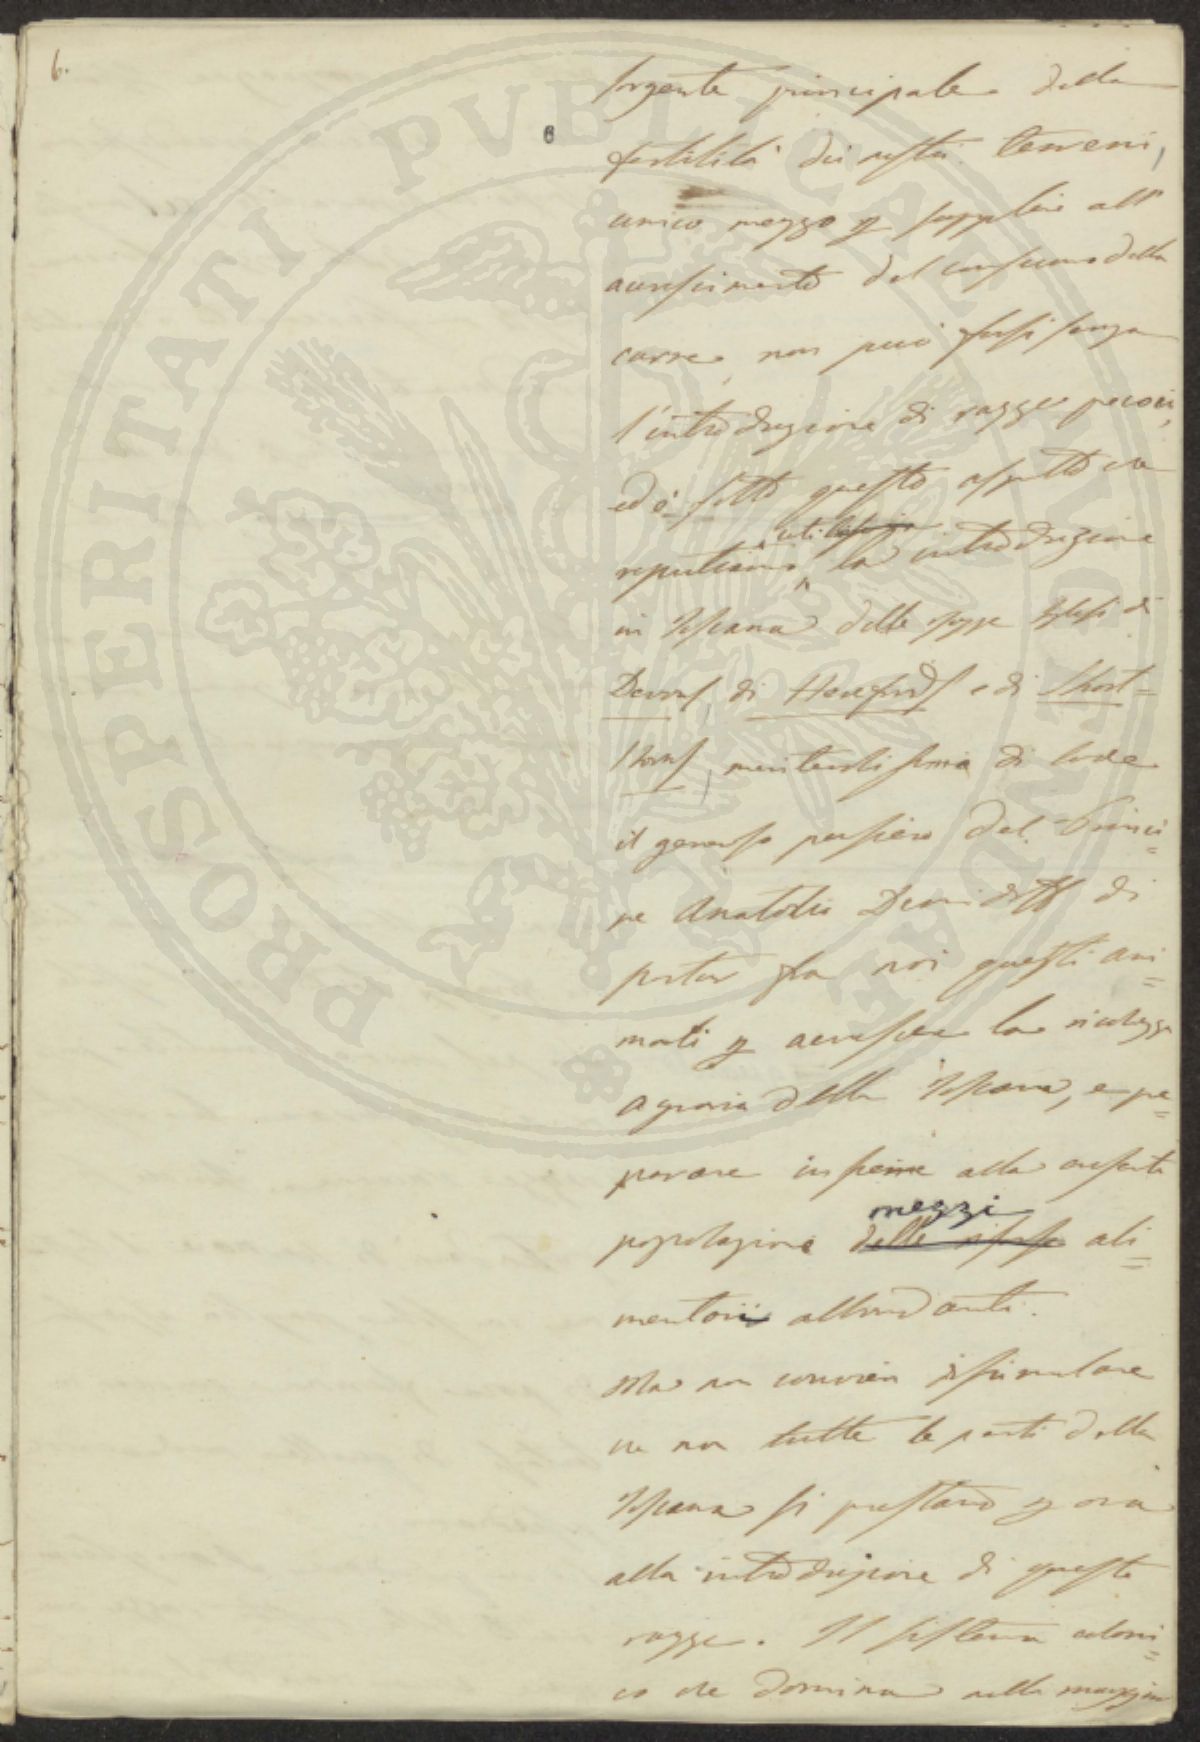 6.
6
sorgente principale della
fertilità dei nostri terreni,
unico mezzo p supplire all'
accrescimento del consumo della
carne, non può farsi senza
l'introduzione di razze precoci,
ed è sotto questo aspetto che
utilissima
reputiamo la introduzione
in Toscana delle razze Inglesi di
Devons, di Herefords e di Short=
horns, meritevolissimo di lode
il generoso pensiero del Princi=
pe Anatolio Demidoff di
portar fra noi questi ani=
mali p accrescere la ricchezza
agraria della Toscana, e pre=
parare insieme alla crescente
mezzi
popolazione delle risorse ali=
mentarii abbondanti.
Ma non convien dissimulare
che non tutte le parti della
Toscana si prestano p ora
alla introduzione di queste
razze. Il sistema coloni=
co che domina nella maggior
PROSPERITATI PUBLICAE AUGENDAE